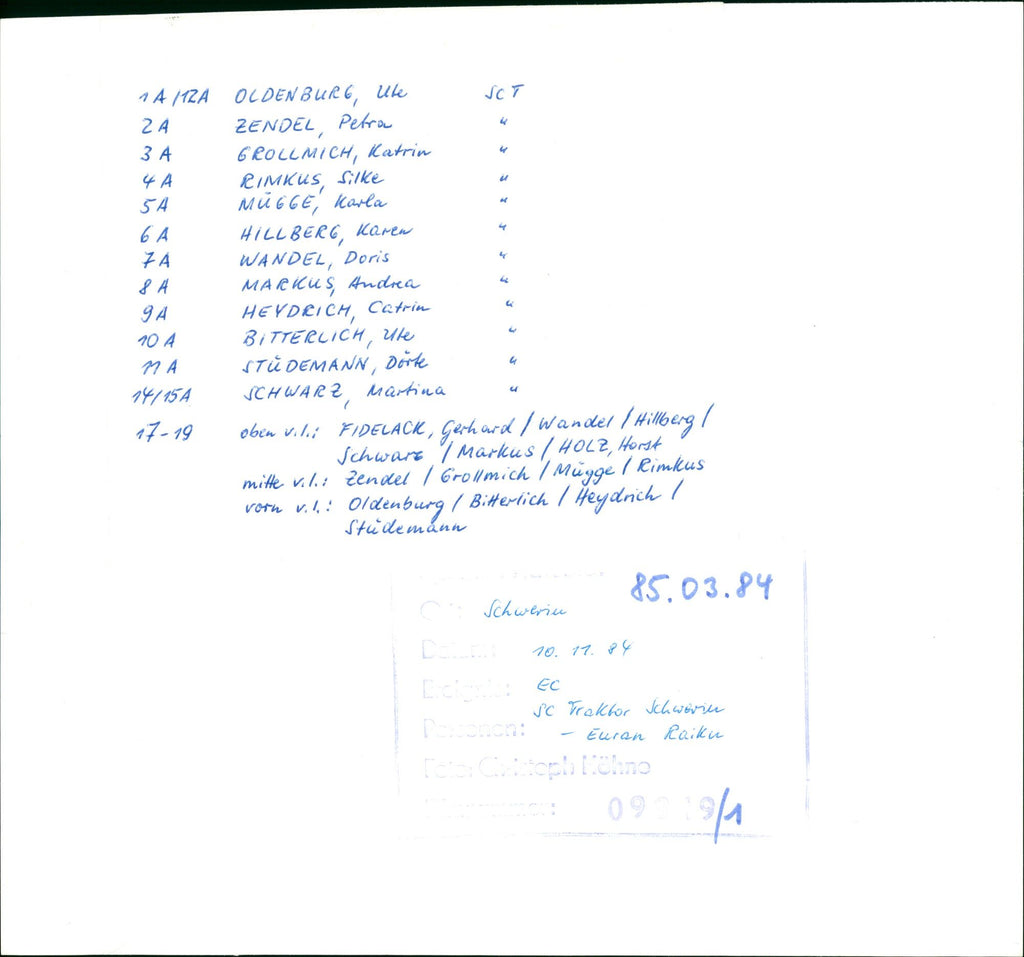 1A/12A OLDENBURG, Ute SCT
2A ZENDEL, Petra "
3A GROLLMICH, Katrin "
4A RIMKUS, Silke "
5A MÜGGE, Karla "
6A HILLBERG, Karen "
7A WANDEL, Doris "
8A MARKUS, Andrea "
9A HEYDRICH, Catrin "
10A BITTERLICH, Ute "
11A STÜDEMANN, Dörte "
14/15A SCHWARZ, Martina "
17-19 oben v.l.: FIDELACK, Gerhard / Wandel / Hillberg /
Schwarz / Markus / HOLZ, Horst
mitte v.l.: Zendel / Grollmich / Mügge / Rimkus
vorn v.l.: Oldenburg / Bitterlich / Heydrich /
Stüdemann
85.03.84
Schwerin
Datum: 10. 11. 84
Ereignis: EC
SC Traktor Schwerin
Personen: -
Foto: Christoph Höhne
/1